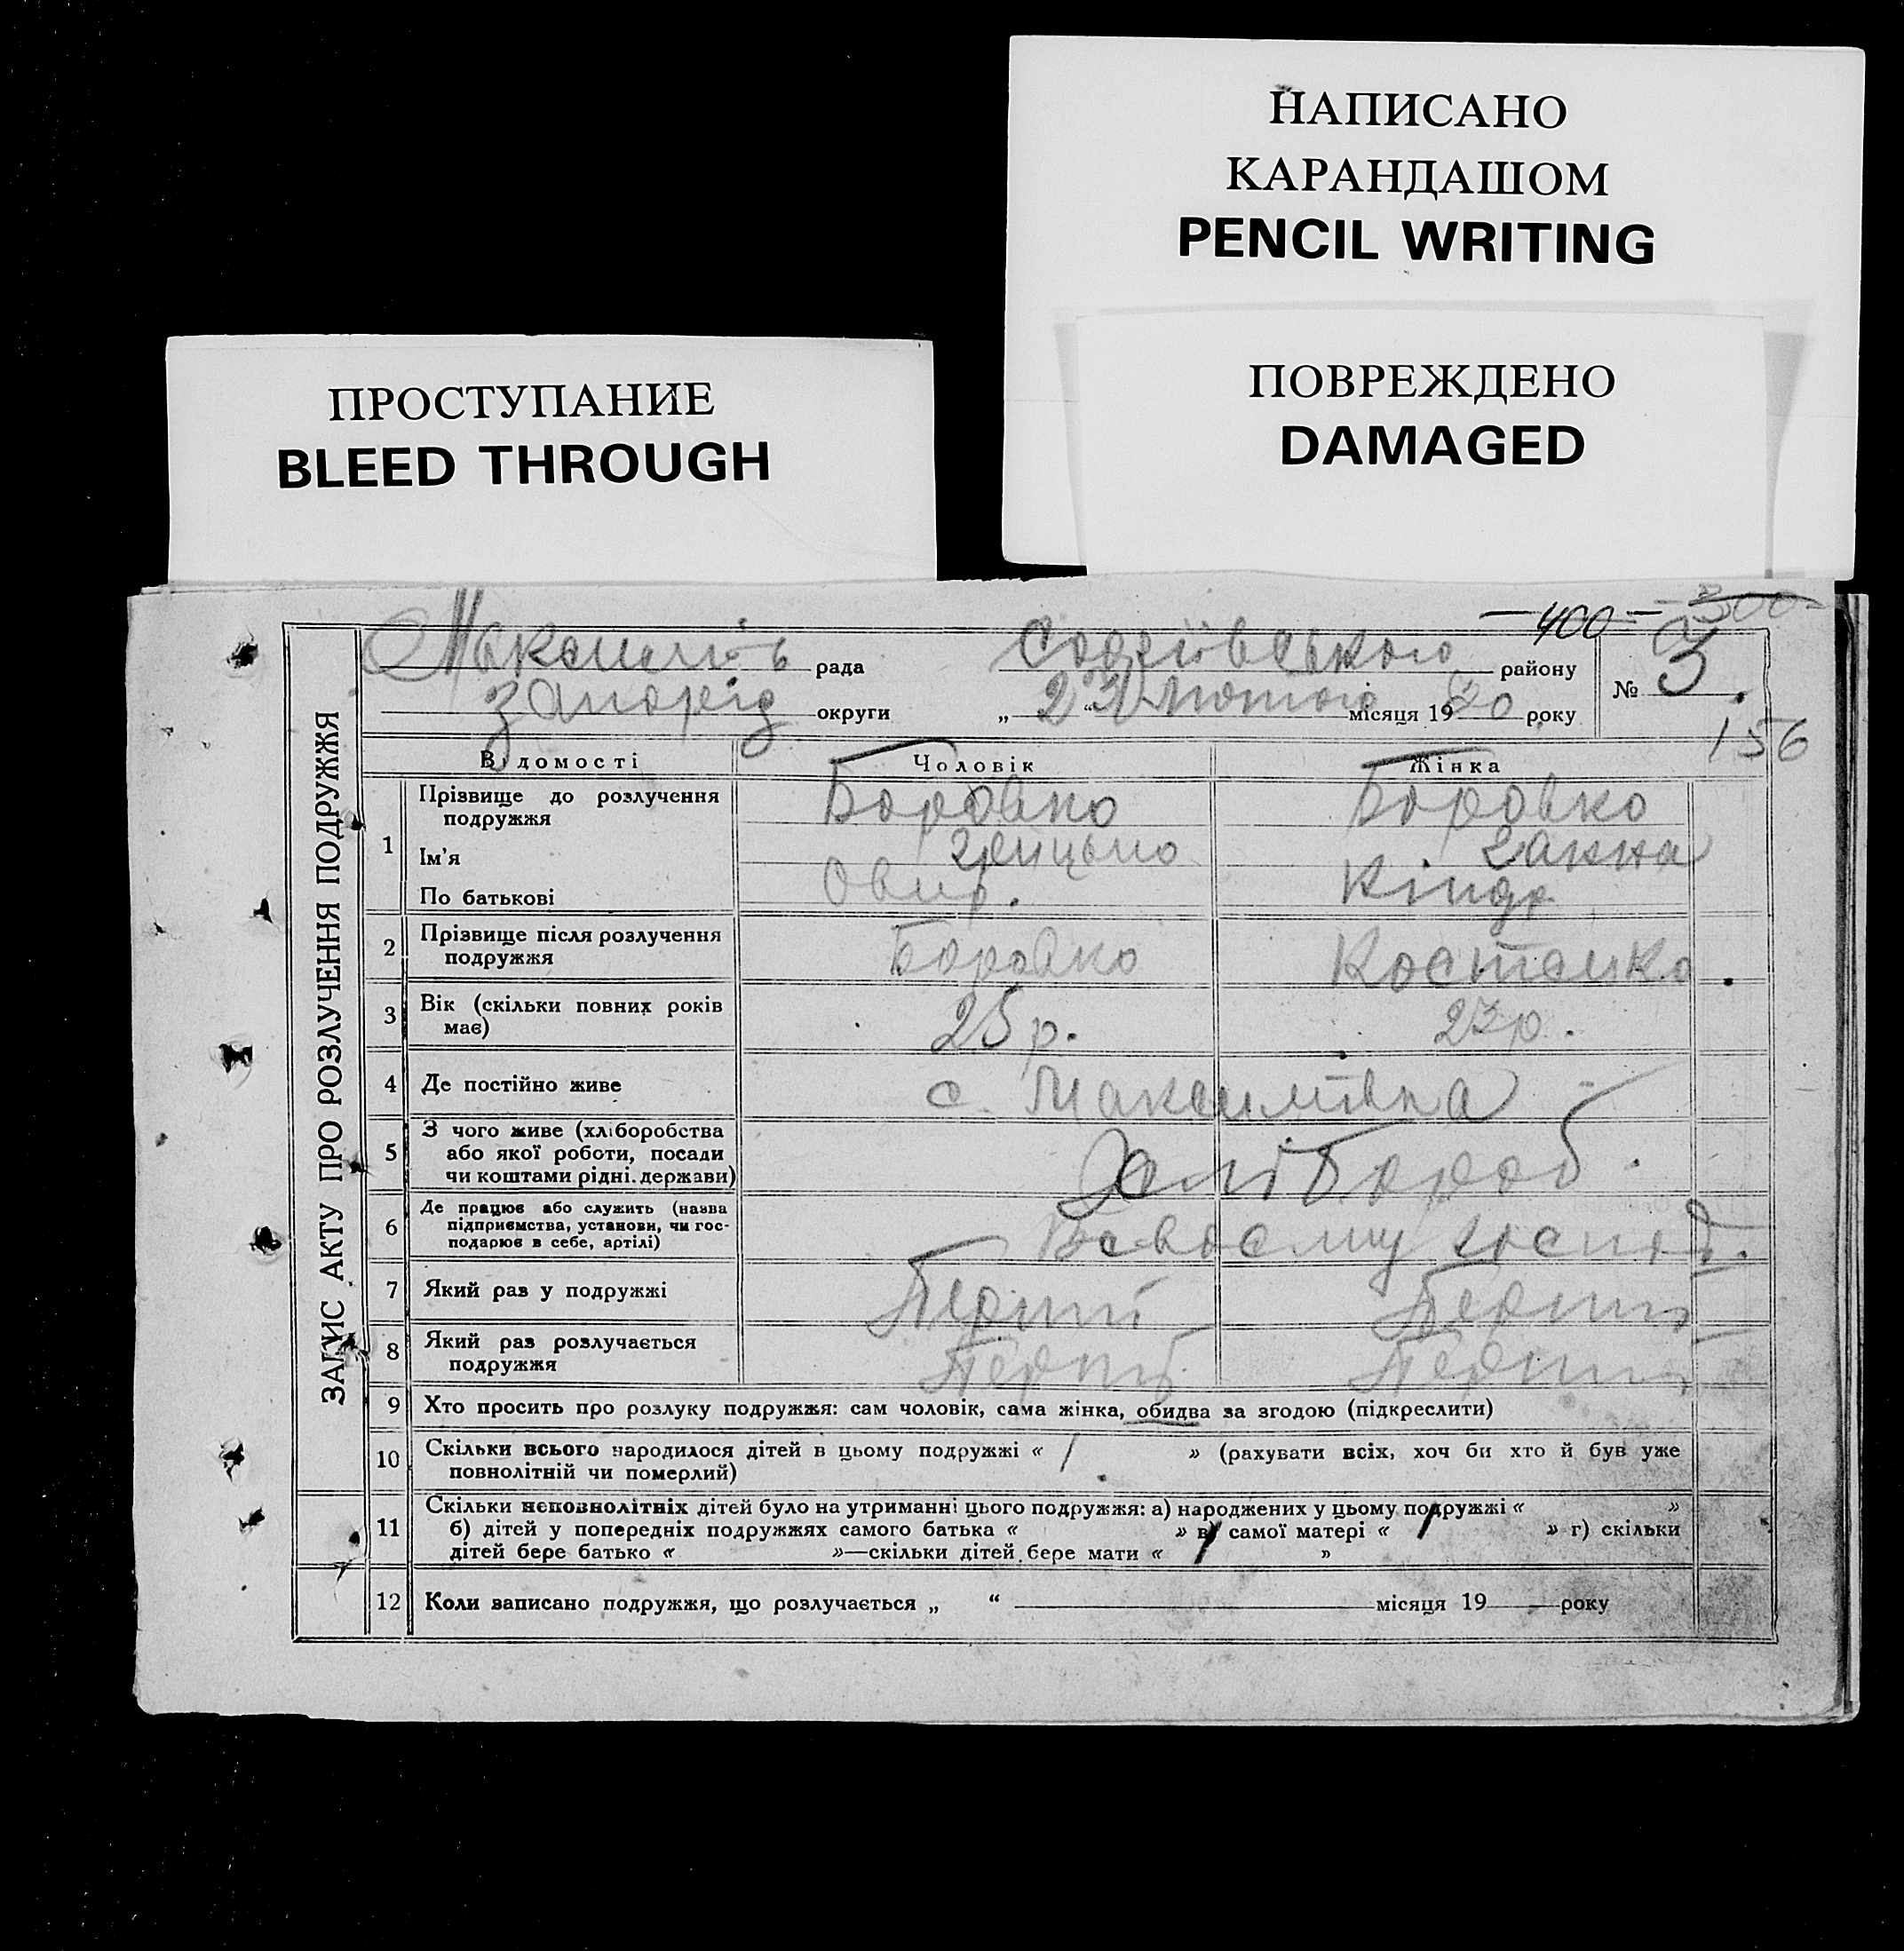 НАПИСАНО
КАРАНДАШОМ
PENCIL WRITING
ПОВРЕЖДЕНО
DAMAGED
ПРОСТУПАНИЕ
BLEED THROUGH
—400— 300
ЗАПИС АКТУ ПРО РОЗЛУЧЕННЯ ПОДРУЖЖЯ
рада Софіївського району № 3.
Запоріз округи „ “ лютого місяця 1930 року
156
Відомості Чоловік Жінка
1 Прізвище до розлучення подружжя Боровко Боровко
Ім'я Грицько Ганна
По батькові Овер. Кіндр
2 Прізвище після розлучення подружжя Боровко Костенко.
3 Вік (скільки повних років має) 25 р. 23 р.
4 Де постійно живе с. Максимівка
5 З чого живе (хліборобства або якої роботи, посади чи коштами рідні. держави) Хлібороб.
6 Де працює або служить (назва підприємства, установи, чи господарює в себе, артілі) В своєму господ.
7 Який раз у подружжі Перший Перший
8 Який раз розлучається подружжя Перший
9 Хто просить про розлуку подружжя: сам чоловік, сама жінка, обидва за згодою (підкреслити)
10 Скільки всього народилося дітей в цьому подружжі « 1 » (рахувати всіх, хоч би хто й був уже
повнолітній чи померлий)
11 Скільки неповнолітніх дітей було на утриманні цього подружжя: а) народжених у цьому подружжі « »
б) дітей у попередніх подружжях самого батька « » в) самої матері « » г) скільки
дітей бере батько « »—скільки дітей бере мати « »
12 Коли записано подружжя, що розлучається „ “ місяця 19 року